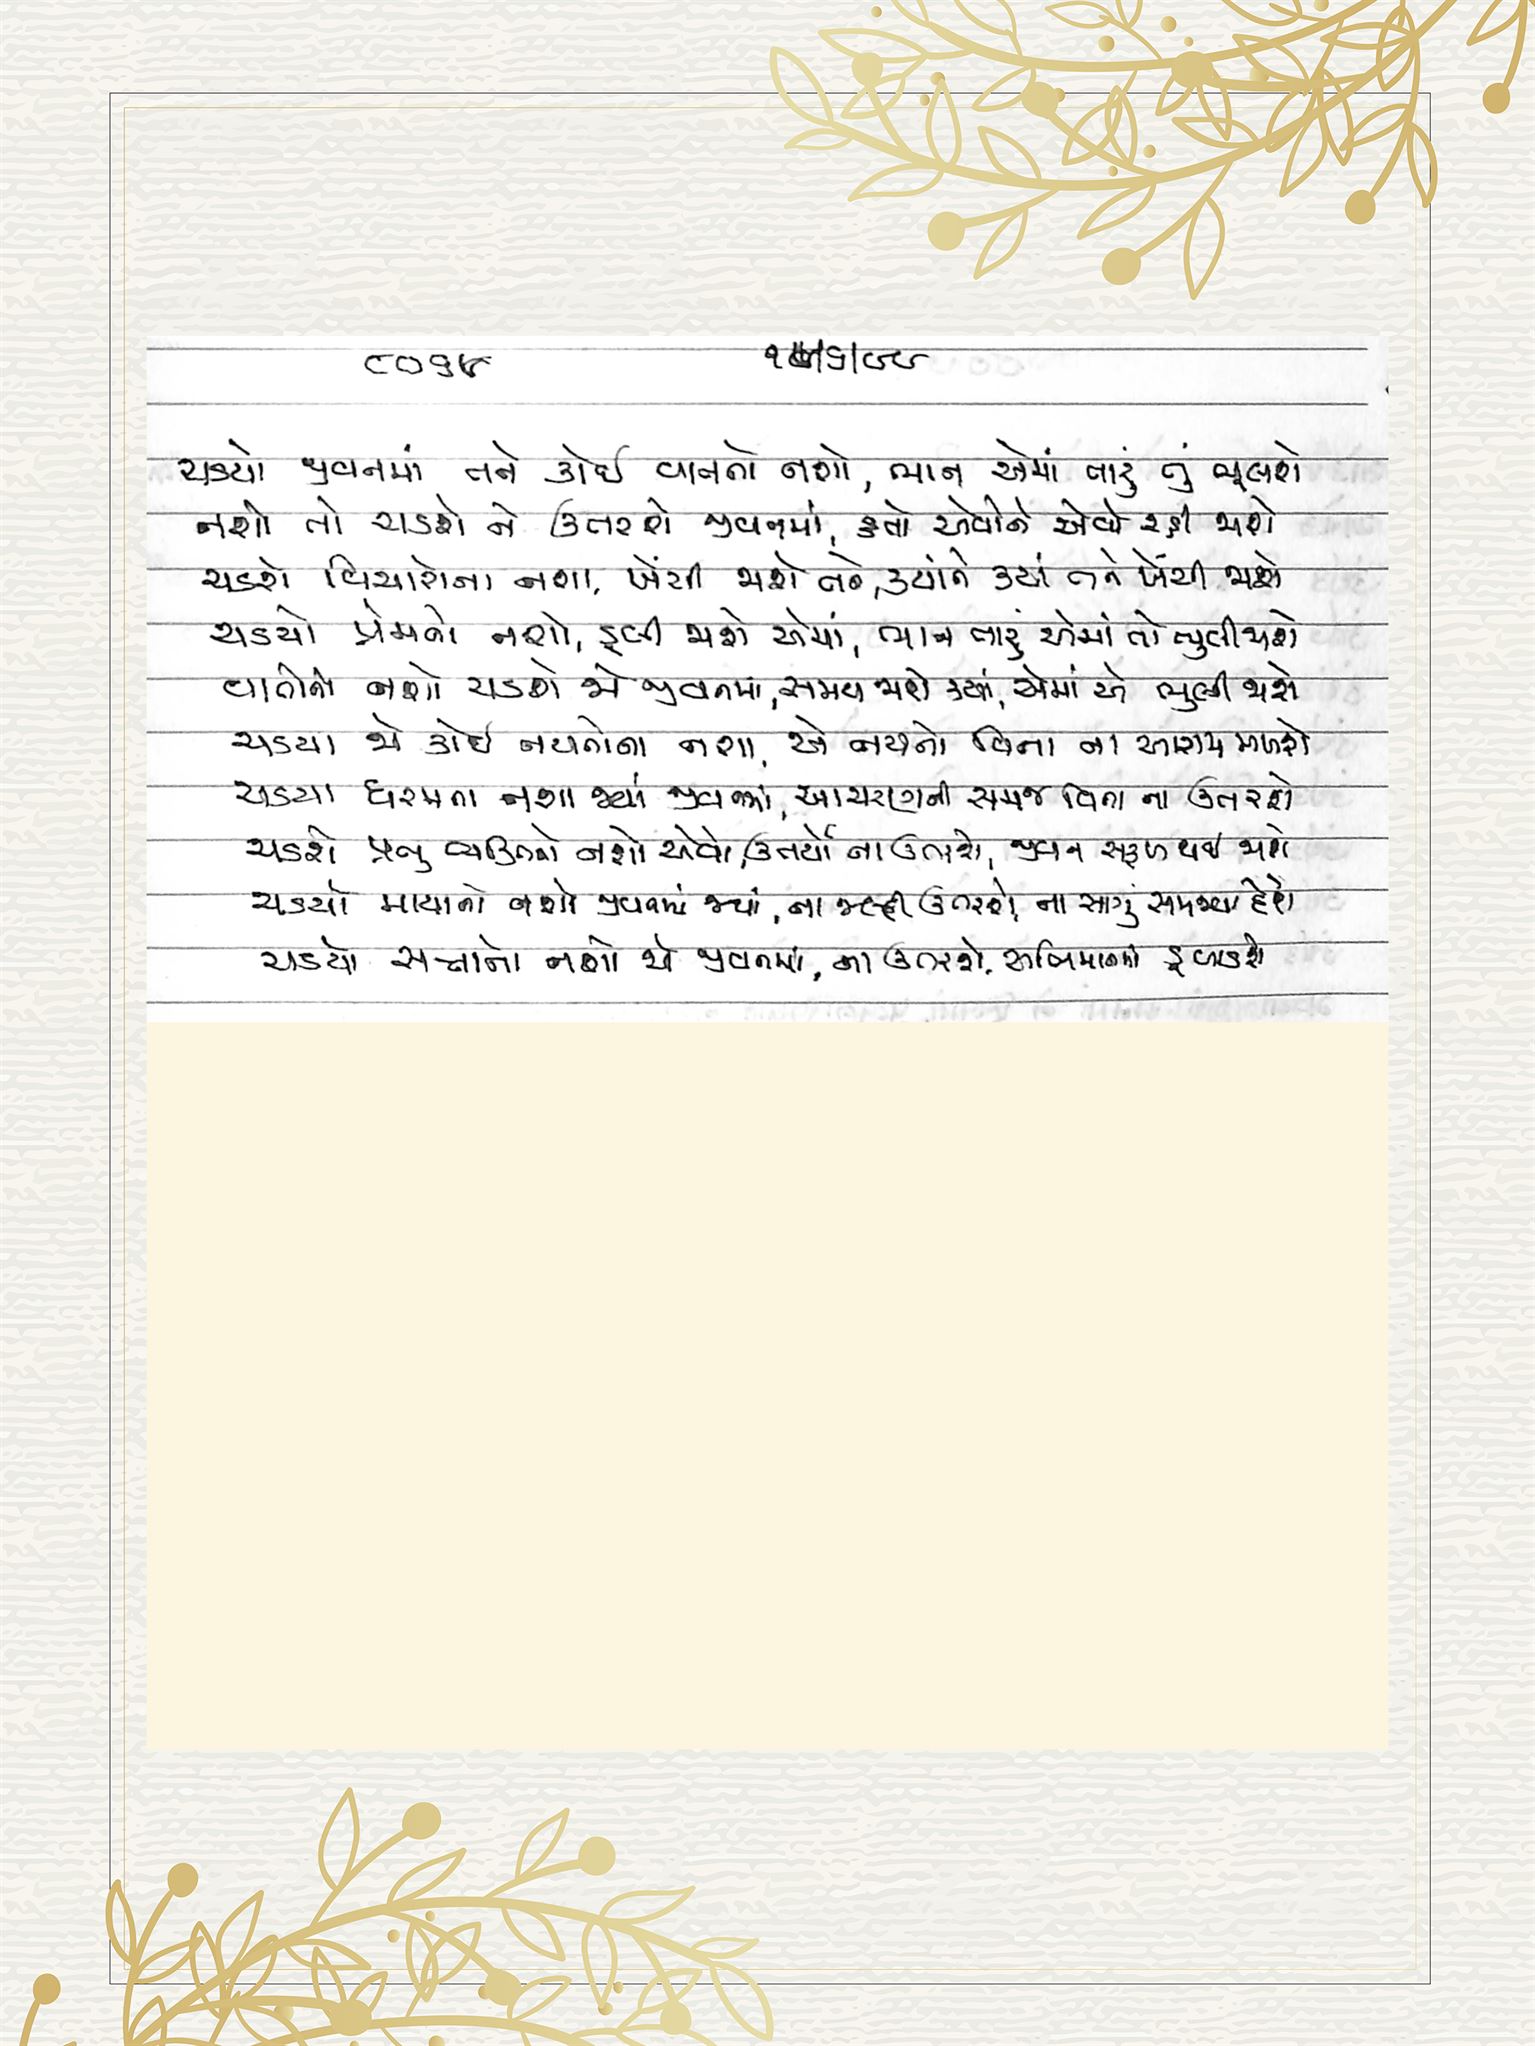 ૮૦૬૪ ૧૭/૬/૯૯
ચડયો જીવનમાં તને કોઈ વાતનો નશો, ભાન એમાં તારું તું ભૂલશે
નશો તો ચડશે ને ઉતરશે જીવનમાં, હતો એવોને એવો રહી જાશે
ચડશે વિચારોના નશા, ખેંચી જાશે તને, ક્યાંને ક્યાં તને ખેંચી જાશે
ચડયો પ્રેમનો નશો, ડૂબી જાશે એમાં, ભાન તારું એમાં તો ભુલી જાશે
વાતોનો નશો ચડશે જો જીવનમાં, સમય જાશે ક્યાં, એમાં એ ભુલી જાશે
ચડયા જો કોઈ નયનોના નશા, એ નયનો વિના ના આરામ મળશે
ચડયા ધરમના નશા જ્યાં જીવનમાં, આચરણની સમજ વિના ના ઉતરશે
ચડશે પ્રભુ ભક્તિનો નશો એવો, ઉતર્યો ના ઉતરશે, જીવન સફળ થઈ જાશે
ચડયો માયાનો નશો જીવનમાં જ્યાં, ના જલ્દી ઉતરશે, ના સાચું સમજવા દેશે
ચડયો સત્તાનો નશો જો જીવનમાં, ના ઉતરશે, અભિમાનમાં ડૂબાડશે